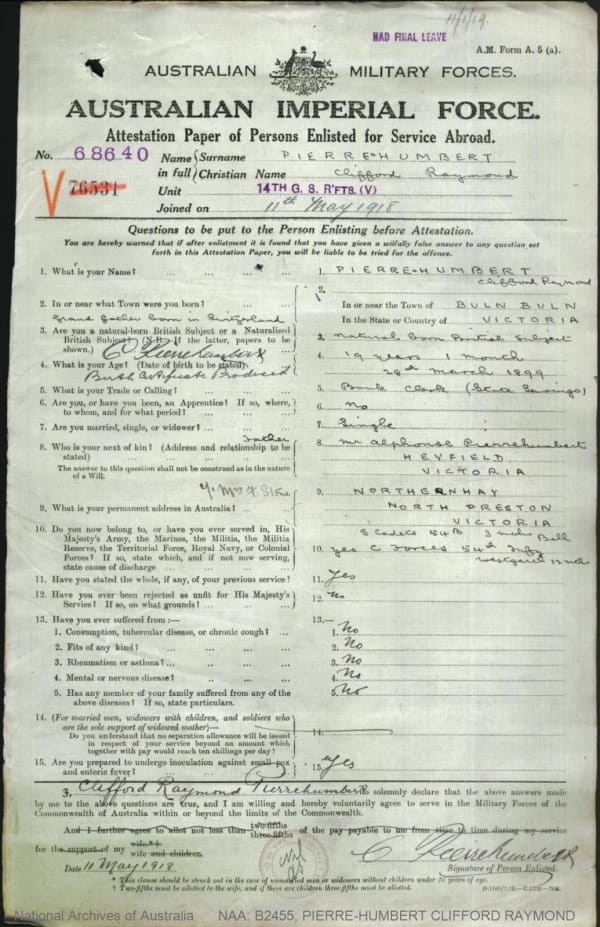 11/1/19.
HAD FINAL LEAVE
A.M. Form A. 5 (a).
AUSTRALIAN MILITARY FORCES.
AUSTRALIAN IMPERIAL FORCE.
Attestation Paper of Persons Enlisted for Service Abroad.
No. 68640 Name in full { Surname PIERRE=HUMBERT
Christian Name Clifford Raymond
V 76531
Unit 14TH G. S. R'FTS. (V)
Joined on 11th May 1918
Questions to be put to the Person Enlisting before Attestation.
You are hereby warned that if after enlistment it is found that you have given a wilfully false answer to any question set
forth in this Attestation Paper, you will be liable to be tried for the offence.
1. What is your Name? ... ... ... ... 1. PIERRE=HUMBERT
Clifford Raymond
2. In or near what Town were you born? ... ... 2. In or near the Town of BULN BULN
In the State or Country of VICTORIA
Grand father born in Switzerland
3. Are you a natural-born British Subject or a Naturalized
British Subject? (N.B. If the latter, papers to be
shown.) 3. Natural born British Subject
C Pierrehumbert
4. What is your Age? (Date of birth to be stated) 4. 19 years 1 month
28th March 1899
Birth Certificate Produced
5. What is your Trade or Calling? ... ... ... 5. Bank Clerk (State Savings)
6. Are you, or have you been, an Apprentice? If so, where,
to whom, and for what period? ... ... ... 6. No
7. Are you married, single, or widower? ... ... 7. Single
8. Who is your next of kin? (Address and relationship to be
stated) ... ... ... ... Father
The answer to this question shall not be construed as in the nature
of a Will.
8 Mr Alphonse Pierrehumbert
HEYFIELD
VICTORIA
9. What is your permanent address in Australia? ... ... 9. NORTHERNHAY
NORTH PRESTON
VICTORIA
10. Do you now belong to, or have you ever served in, His
Majesty's Army, the Marines, the Militia, the Militia
Reserve, the Territorial Force, Royal Navy, or Colonial
Forces? If so, state which, and if not now serving,
state cause of discharge ... ... ...
S Cadets 54B
10. yes C Forces 54th Infy
11. Have you stated the whole, if any, of your previous service? 11. Yes
12. Have you ever been rejected as unfit for His Majesty's
Service? If so, on what grounds? ... ... ... 12. No
13. Have you ever suffered from :— 13.—
1. Consumption, tubercular disease, or chronic cough? ... 1. No
2. Fits of any kind? ... ... ... ... 2. No
3. Rheumatism or asthma? ... ... ... ... 3. No
4. Mental or nervous disease? ... ... ... 4. No
5. Has any member of your family suffered from any of the
above diseases? If so, state particulars. 5. No
14. (For married men, widowers with children, and soldiers who
are the sole support of widowed mother)—
Do you understand that no separation allowance will be issued
in respect of your service beyond an amount which
together with pay would reach ten shillings per day? 14.
15. Are you prepared to undergo inoculation against small pox
and enteric fever? ... ... ... 15. Yes
I, Clifford Raymond Pierrehumbert do solemnly declare that the above answers made
by me to the above questions are true, and I am willing and hereby voluntarily agree to serve in the Military Forces of the
Commonwealth of Australia within or beyond the limits of the Commonwealth.
And I further agree to allot not less than two-fifths three-fifths of the pay payable to me from time to time during my service
for the support of my wife.*† wife and children.
Date 11 May 1918 C Pierrehumbert
Signature of Person Enlisted.
* This clause should be struck out in the case of unmarried men or widowers without children under 18 years of age.
† Two-fifths must be allotted to the wife, and if there are children three-fifths must be allotted.
National Archives of Australia NAA: B2455, PIERRE-HUMBERT CLIFFORD RAYMOND